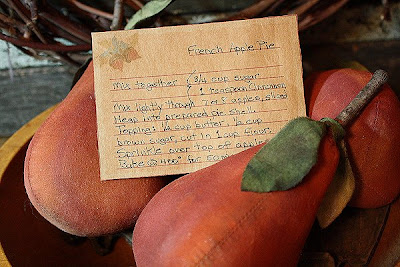 French Apple Pie
Mix together { 3/4 cup sugar
1 teaspoon cinnamon
Mix lightly through 7 apples, sliced
Heap into prepared pie shells
Topping: 1/2 cup butter, 1/2 cup
brown sugar, cut in 1 cup flour
Sprinkle over top of apples
Bake @ 400° for